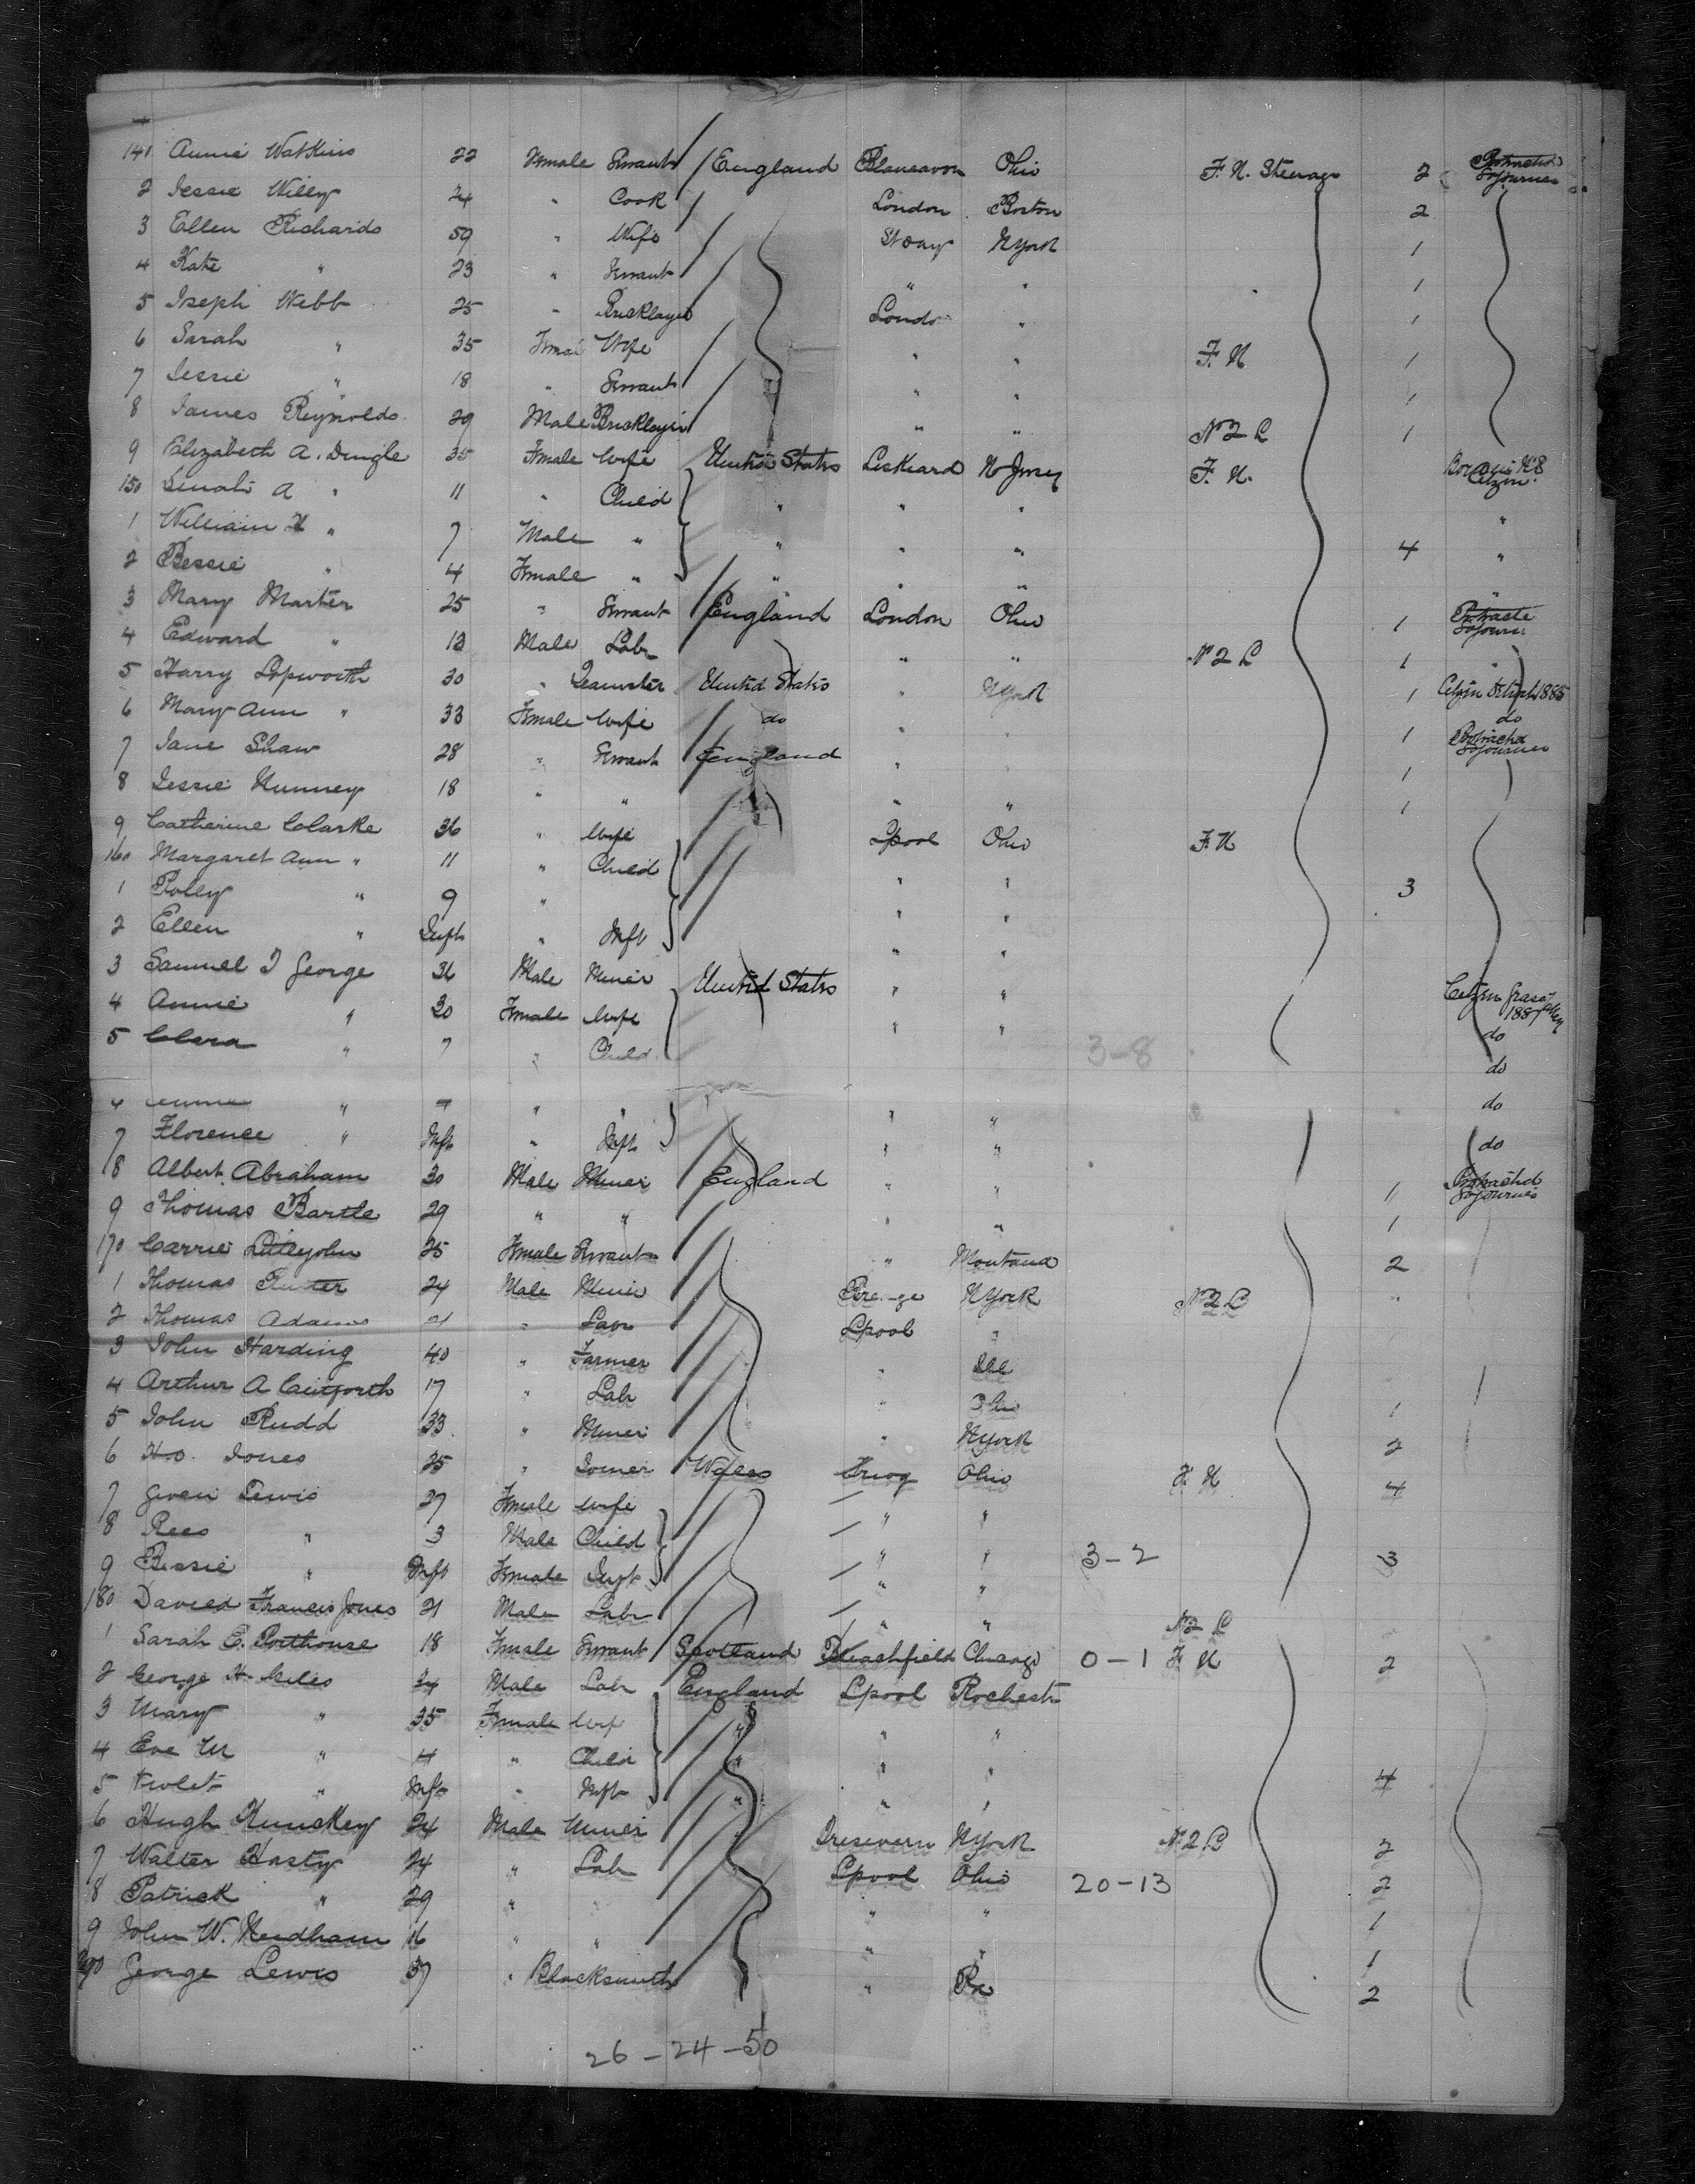 141 Annie Watkins 22 Female Servant England Blaneavon Ohio F. N. Steerage 2 Protracted Sojourner
2 Jessie Willy 24 " Cook London Boston 2
3 Ellen Richards 59 " Wife NYork 1
4 Kate " 23 " Servant " " 1
5 Joseph Webb 25 " Bricklayer London " 1
6 Sarah " 35 Female Wife " " F. N 1
7 Jessie " 18 " Servant " " 1
8 James Reynolds 29 Male Bricklayer " " No 2 C 1
9 Elizabeth A. Dingle 35 Female Wife United States Liskeard N Jersey F. N. Citizen
150 A " 11 " Child " " " "
1 William H " 7 Male " " " " 4 "
2 Bessie " 4 Female " " " " "
3 Mary Marter 25 " Servant England London Ohio 1
4 Edward " 12 Male Labr " " No 2 C 1 "
5 Harry Lopworth 30 " Teamster United States " NYork 1 Citizen 1885
6 Mary Ann " 33 Female Wife do " " 1 do
7 Jane Shaw 28 " Servant England " " 1 Protracted Sojourner
8 Jessie Nunney 18 " " " " 1
9 Catherine Clarke 36 " Wife Lpool Ohio F. N
160 Margaret Ann " 11 " Child " " 3
1 Polly " 9 " " "
2 Ellen " Inft " Inft " "
3 Samuel J George 36 Male Miner United States " " Citizen 1887
4 Annie " 30 Female Wife " " do
5 Clara " 7 " Child 3-8 do
6 " 4 " " " " do
7 Florence " Inft " Inft " " do
8 Albert Abraham 30 Male Miner England " " 1 Protracted Sojourner
9 Thomas Bartle 29 " " " " 1
170 Carrie Littlejohn 25 Female Servant " Montana 2
1 Thomas 24 Male Miner NYork No 2 C "
2 Thomas Adams 21 " Labr Lpool "
3 John Harding 40 " Farmer " Ill
4 Arthur A 17 " Labr " Ohio 1
5 John Rudd 33 " Miner " NYork 2
6 Jones 25 " Joiner Wales Ohio F. N 4
7 Gwen Lewis 27 Female Wife " "
8 Rees " 3 Male Child " " 3-2 3
9 Bessie " Inft Female Inft " "
180 David Francis Jones 21 Male Labr " " No 2 C 2
1 Sarah E. Porthouse 18 Female Servant Scotland Chicago 0-1 F. N 2
2 George H. Giles 34 Male Labr England Lpool Rochestr
3 Mary " 35 Female Wife " " "
4 Eve M " 4 " Child " " " 4
5 Violet " Inft " Inft " " "
6 Hugh 24 Male Miner NYork No 2 C 2
7 Walter Hasty 24 " Labr Lpool Ohio 20-13 2
8 Patrick " 29 " " " 1
9 John W. Needham 16 " " " " 1
190 George Lewis 37 " Blacksmith " Pa 2
26-24-50